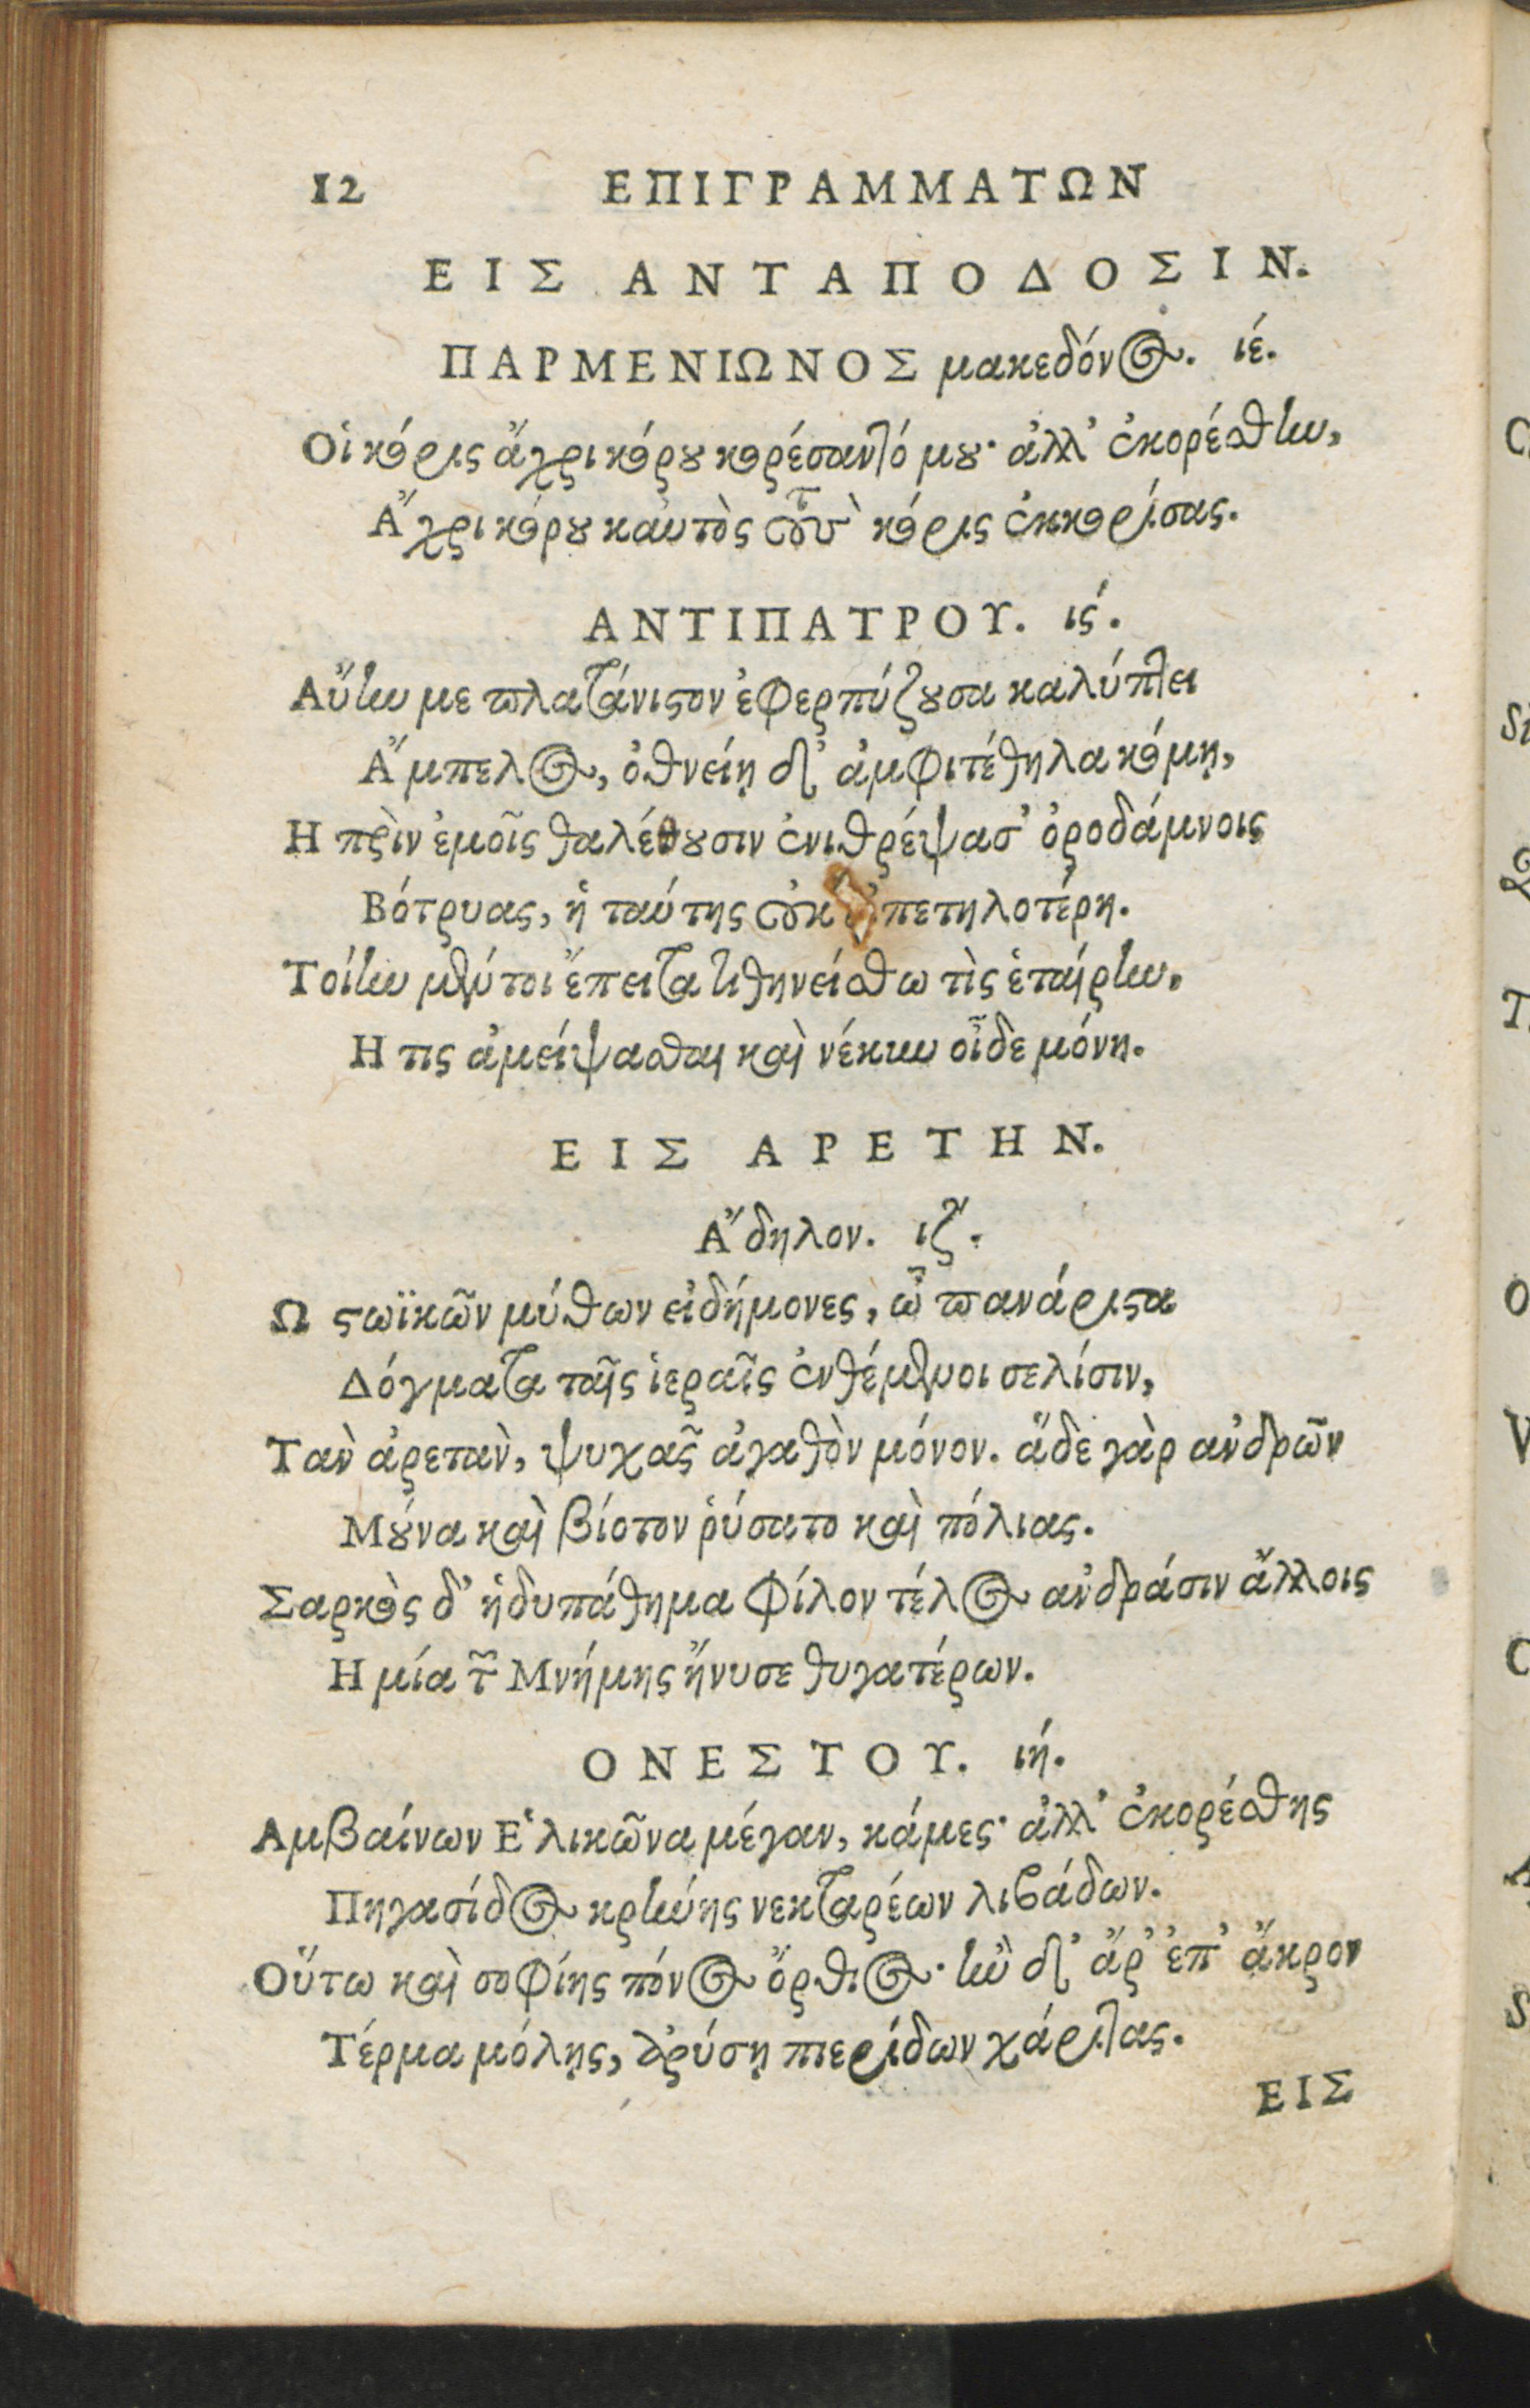 12 ΕΠΙΓΡΑΜΜΑΤΩΝ
ΕΙΣ ΑΝΤΑΠΟΔΟΣΙΝ.
ΠΑΡΜΕΝΙΩΝΟΣ μακεδόνος. ιέ.
Οἱ κόρις ἄχρι κόρου κορέσαντό μου· ἀλλ' ἐκορέσθην,
Ἄχρι κόρου καυτὸς τοὺς κόρις ἐκκορίσας.
ΑΝΤΙΠΑΤΡΟΥ. ιϛ́.
Αὔην με πλατάνιστον ἐφερπύζουσα καλύπτει
Ἄμπελος, ὀθνείῃ δ' ἀμφιτέθηλα κόμῃ,
Η πρὶν ἐμοῖς θαλέθουσιν ἐνιθρέψασ' ὀροδάμνοις
Βότρυας, ἡ ταύτης οὐκ πετηλοτέρη.
Τοίην μέντοι ἔπειτα τιθηνείσθω τὶς ἑταίρην,
Η τις ἀμείψασθαι καὶ νέκυν οἶδε μόνη.
ΕΙΣ ΑΡΕΤΗΝ.
Ἄδηλον. ιζ́.
Ω στωϊκῶν μύθων εἰδήμονες, ὦ πανάριστα
Δόγματα ταῖς ἱεραῖς ἐνθέμενοι σελίσιν,
Τὰν ἀρετὰν, ψυχᾶς ἀγαθὸν μόνον. ἅδε γὰρ ἀνδρῶν
Μούνα καὶ βίοτον ῥύσατο καὶ πόλιας.
Σαρκὸς δ' ἡδυπάθημα φίλον τέλος ἀνδράσιν ἄλλοις
Η μία τῶν Μνήμης ἤνυσε θυγατέρων.
ΟΝΕΣΤΟΥ. ιή.
Αμβαίνων Ἑλικῶνα μέγαν, κάμες· ἀλλ' ἐκορέσθης
Πηγασίδος κρήνης νεκταρέων λιβάδων.
Οὕτω καὶ σοφίης πόνος ὄρθιος· ἢν δ' ἄρ' ἐπ' ἄκρον
Τέρμα μόλῃς, ἀρύσῃ πιερίδων χάριτας.
ΕΙΣ